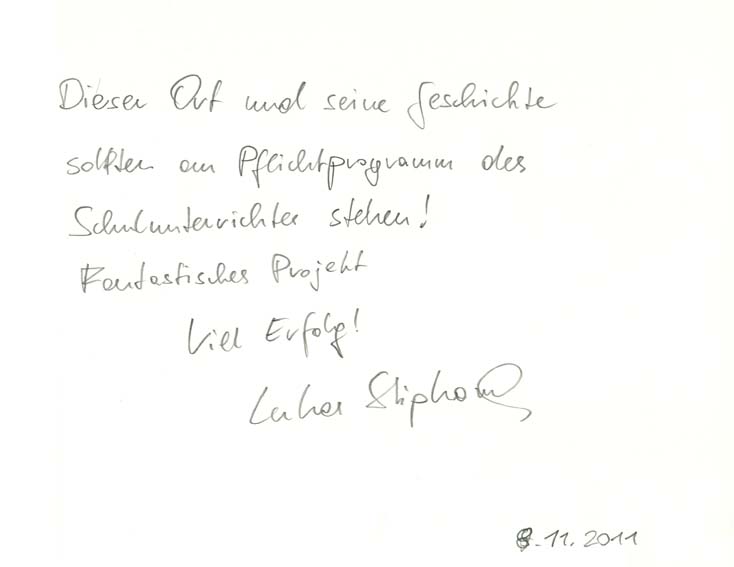 Dieser Ort und seine Geschichte
sollten am Pflichtprogramm des
Schulunterrichtes stehen!
Fantastisches Projekt
Viel Erfolg!
Lukas
8.11.2011